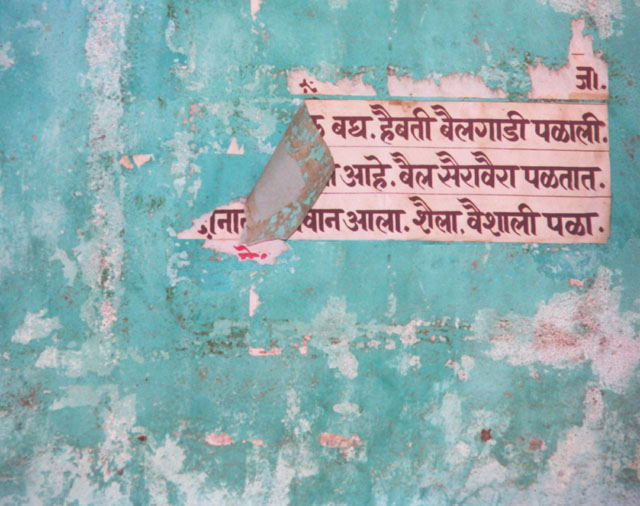 जा.
बघ. हैबती बैलगाडी पळाली.
आहे. बैल सैरावैरा पळतात.
आला. शैला, वैशाली पळा.